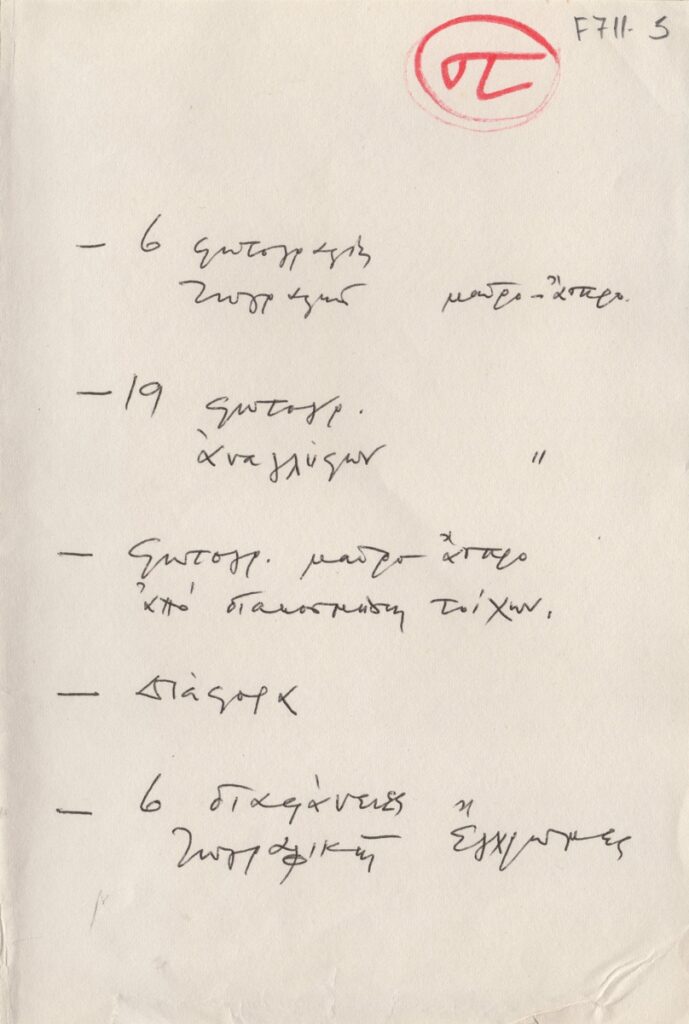 F711-S
στ
– 6 φωτογραφίες
ζωγραφικῆς μαῦρο-ἄσπρο.
– 19 φωτογρ.
ἀναγλύφων "
– φωτογρ. μαῦρο-ἄσπρο
ἀπό διακοσμήση τοίχων.
– Διάφορα
– 6 διαφάνειες
ζωγραφικῆς ἔγχρωμες